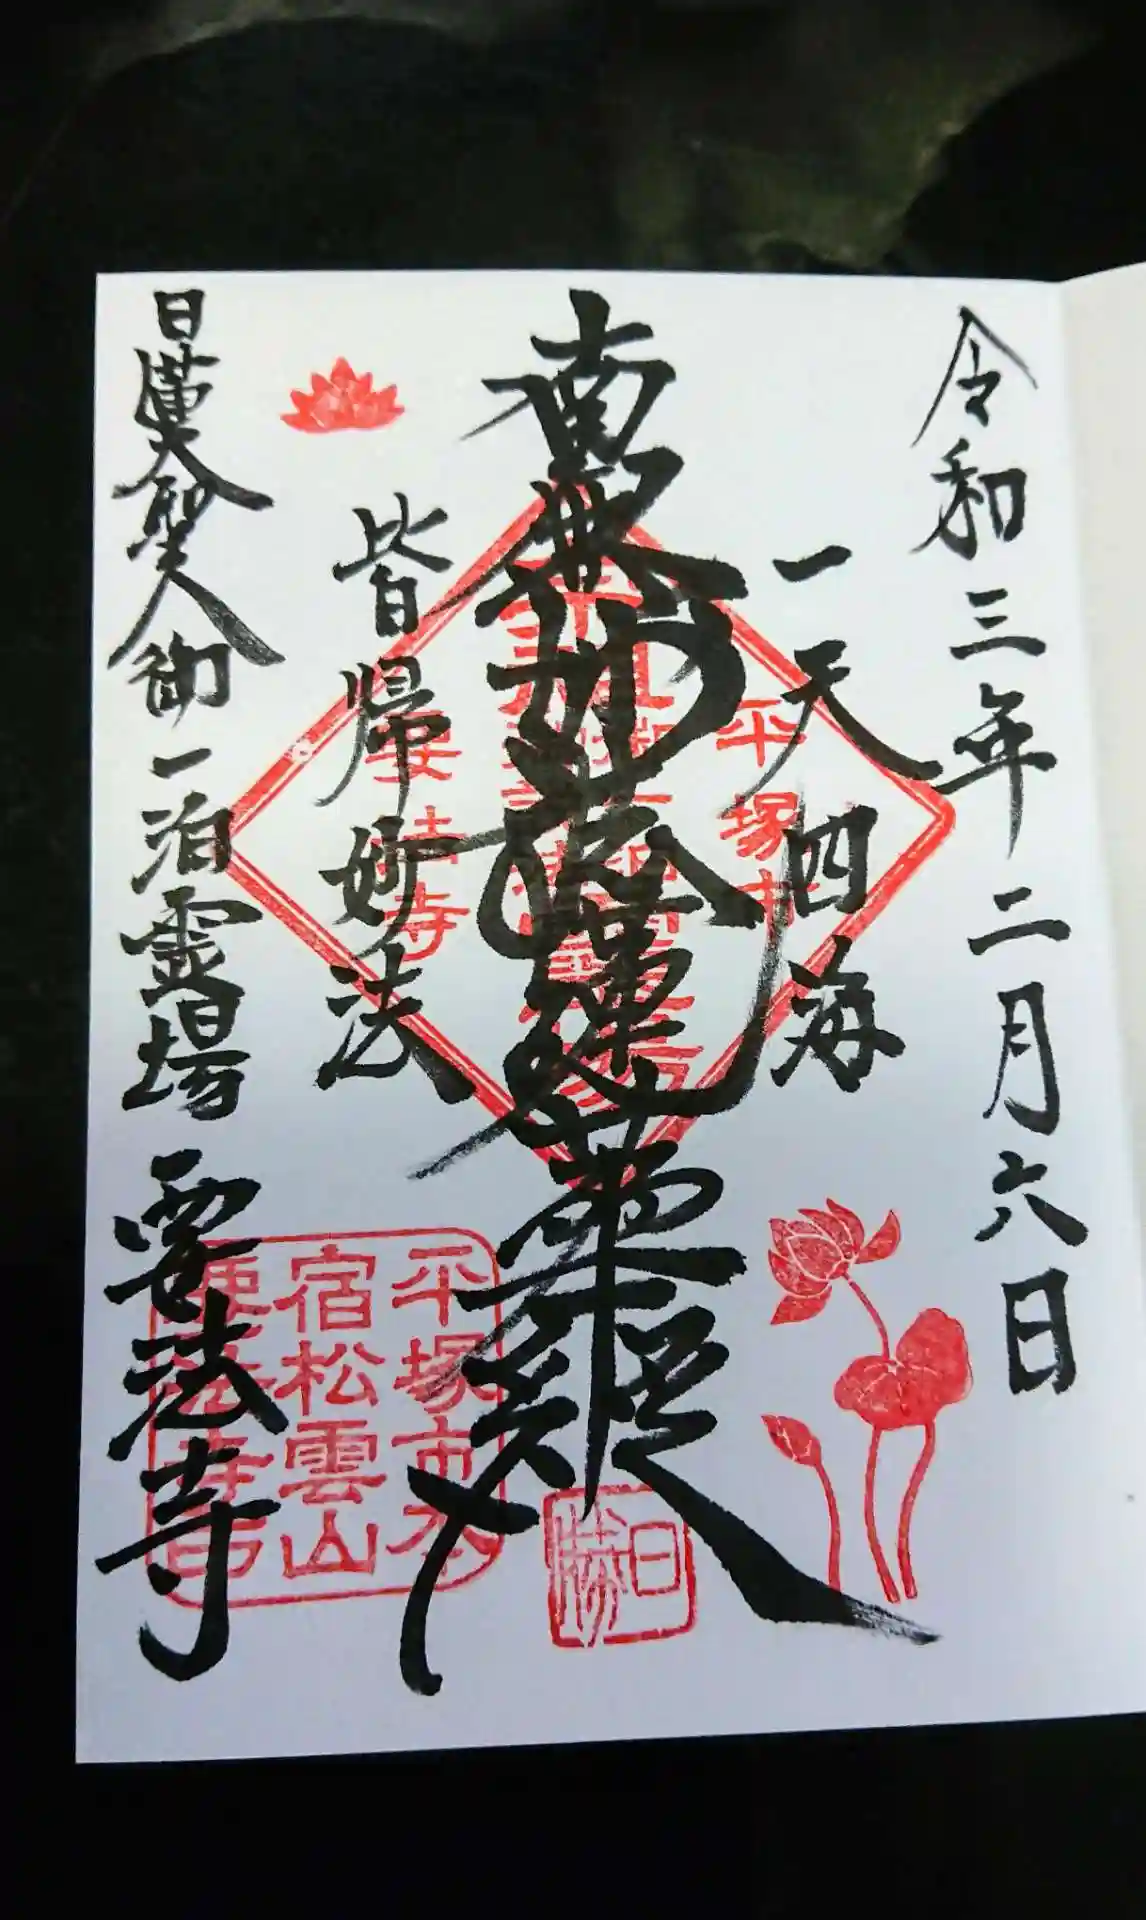 令和三年二月六日
一天四海
南無妙法蓮華経
皆帰妙法
日蓮大聖人御一泊霊場 要法寺
平塚市
要法寺
平塚市
宿松雲山
要法寺
日